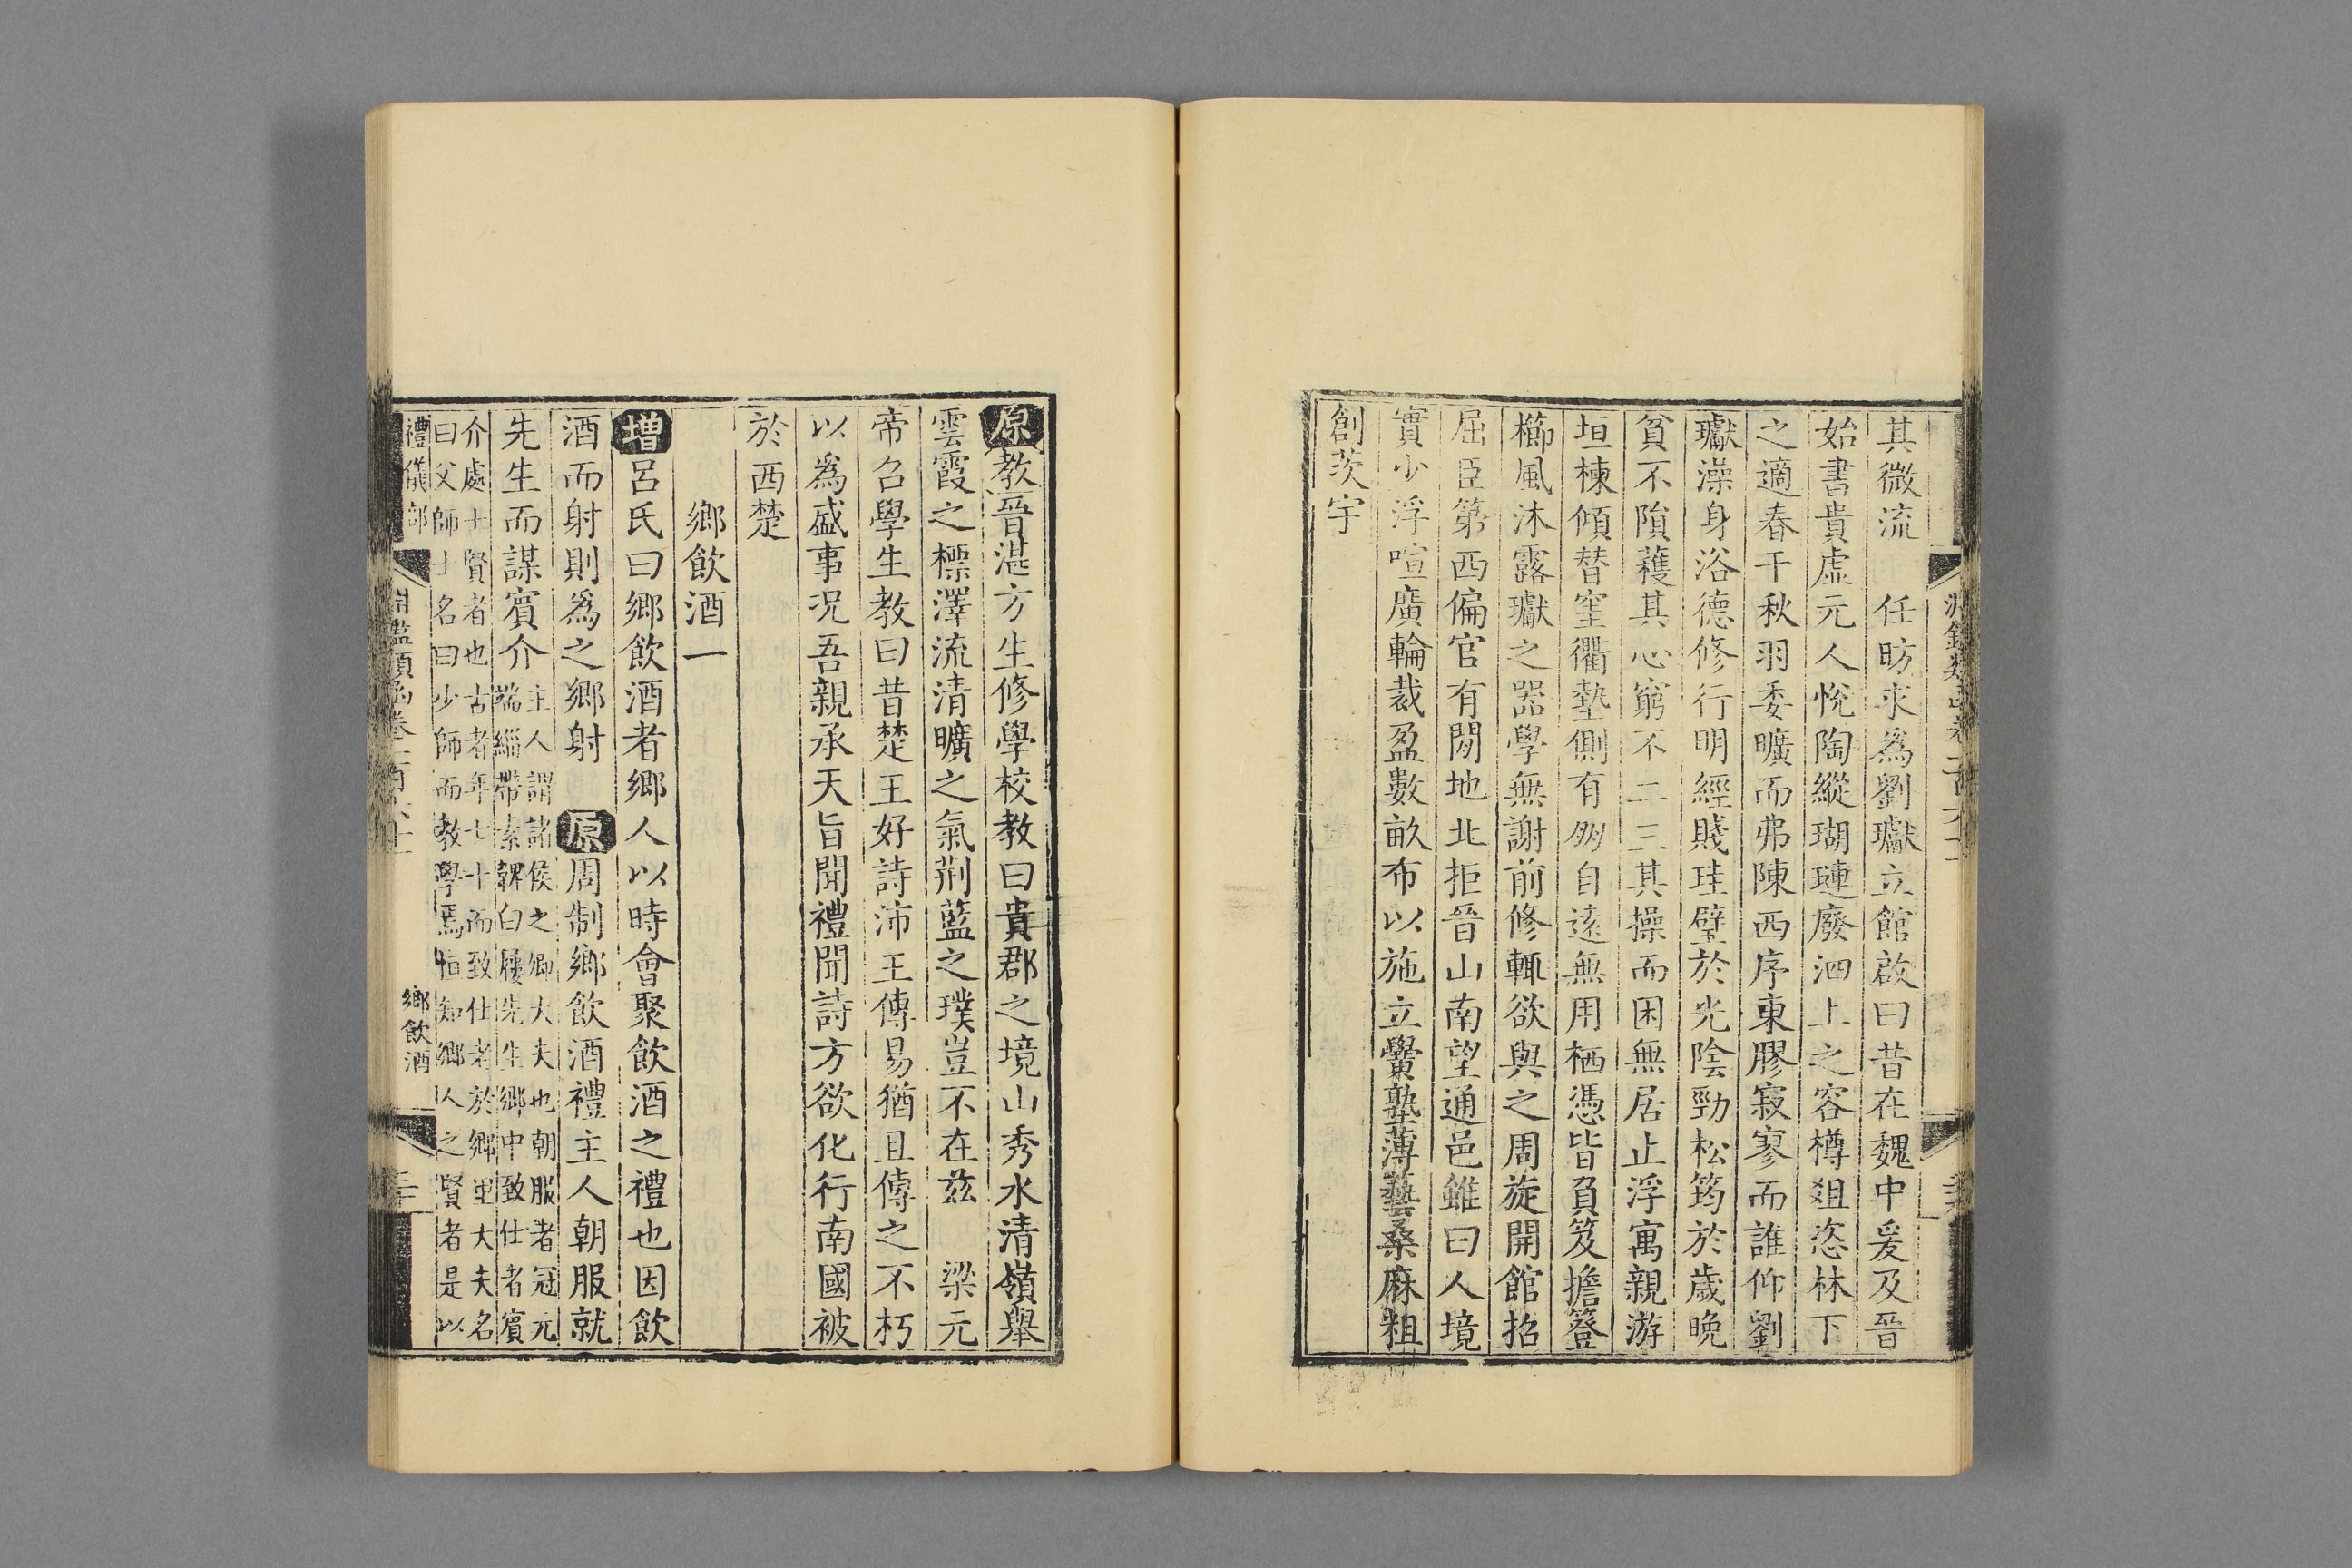 其微流　任昉求為劉瓛立館啟曰昔在魏中爰及晉
始書貴虛元人悅陶縱瑚璉廢泗上之容樽俎恣林下
之適春干秋羽委曠而弗陳西序東膠寂寥而誰仰劉
瓛澡身浴德修行明經賤珪璧於光陰勁松筠於歲晚
貧不隕穫其心窮不二三其操而困無居止浮寓親游
垣棟傾替窐衢墊側有朋自遠無用栖憑皆負笈擔簦
櫛風沐露瓛之器學無謝前修輒欲與之周旋開館招
屈臣第西偏官有閒地北拒晉山南望通邑雖曰人境
實少浮喧廣輪裁盈數畝布以施立黌塾薄藝桑麻粗
創茨宇
原教晉湛方生修學校教曰貴郡之境山秀水清嶺舉
雲霞之標澤流清曠之氣荆藍之璞豈不在兹　梁元
帝召學生教曰昔楚王好詩沛王傳易猶且傳之不朽
以為盛事況吾親承天旨聞禮聞詩方欲化行南國被
於西楚
鄉飲酒一
增呂氏曰鄉飲酒者鄉人以時會聚飲酒之禮也因飲
酒而射則為之鄉射　原周制鄉飲酒禮主人朝服就
先生而謀賓介
主人謂諸侯之鄉大夫也朝服者冠元
端緇帶素韠白屨先生鄉中致仕者賓
介處士賢者也古者年七十而致仕老於鄉里大夫名
曰父師士名曰少師而教學焉恒知鄉人之賢者是以
禮儀部
淵鑑類函卷一百六十
鄉飲酒